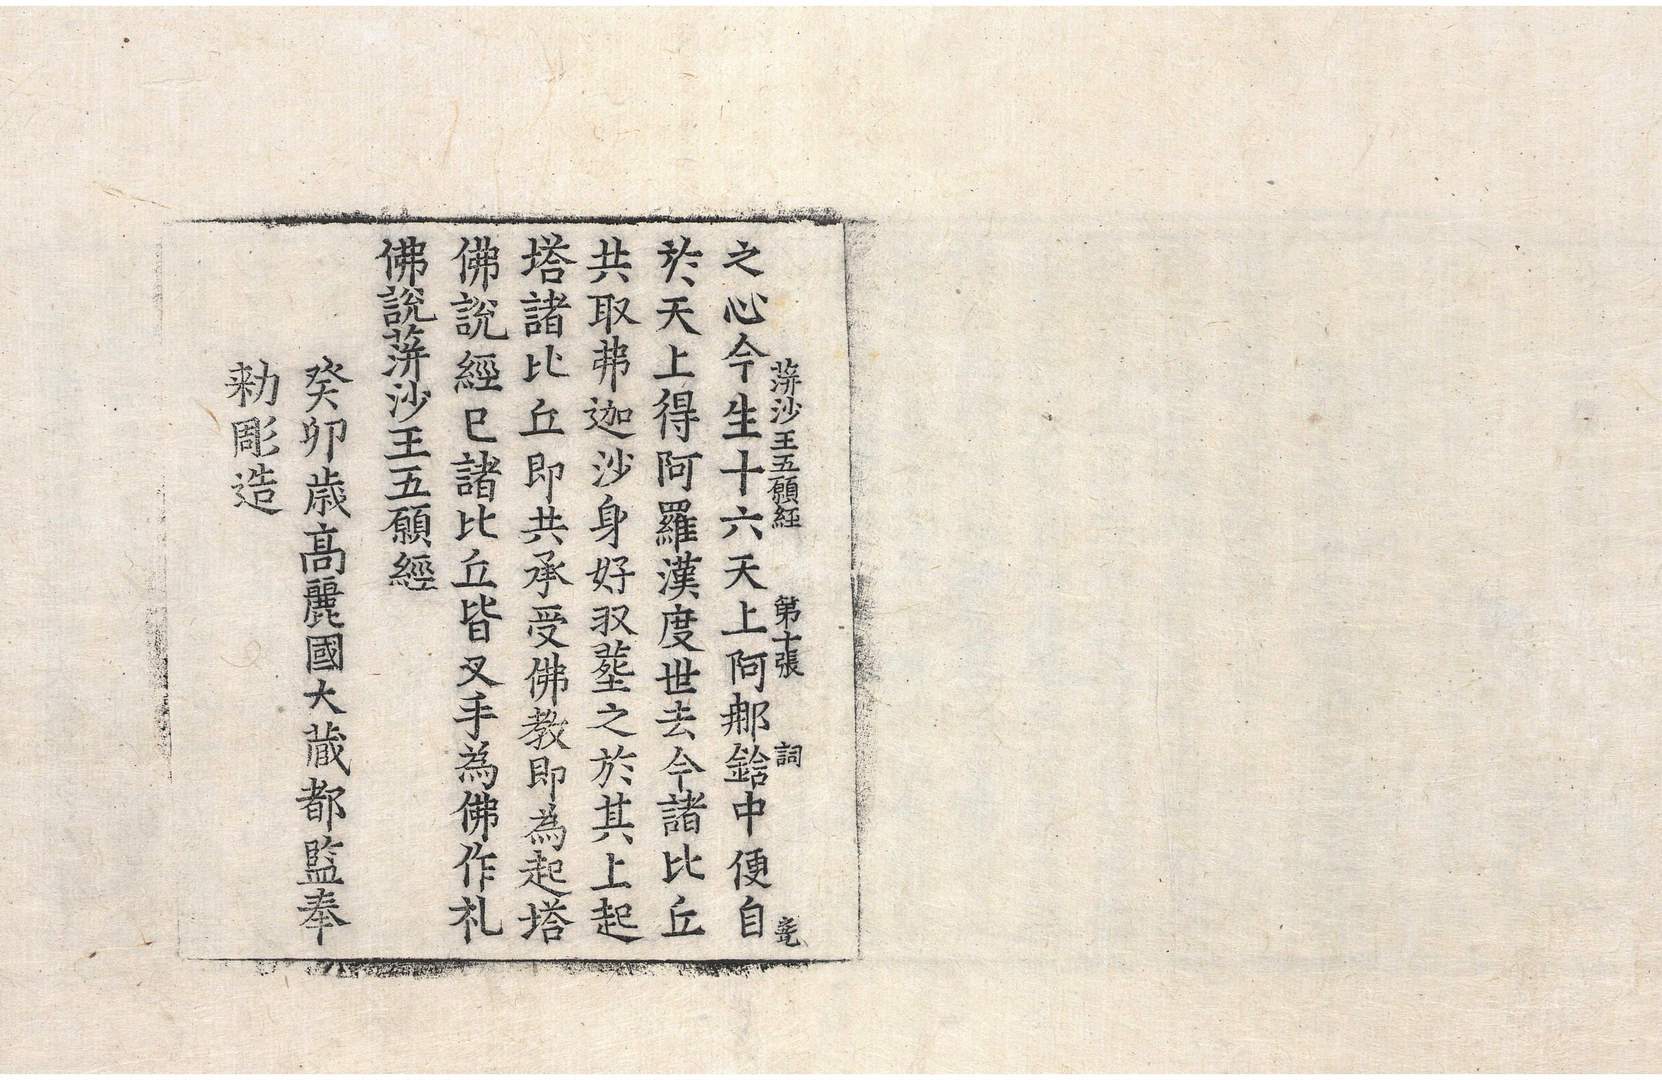 蓱沙王五願經 第十張 詞
之心今生十六天上阿那鋡中便自
於天上得阿羅漢度世去今諸比丘
共取弗迦沙身好収塟之於其上起
塔諸比丘即共承受佛教即為起塔
佛說經已諸比丘皆叉手為佛作礼
佛說蓱沙王五願經
癸卯歲高麗國大藏都監奉
勅彫造